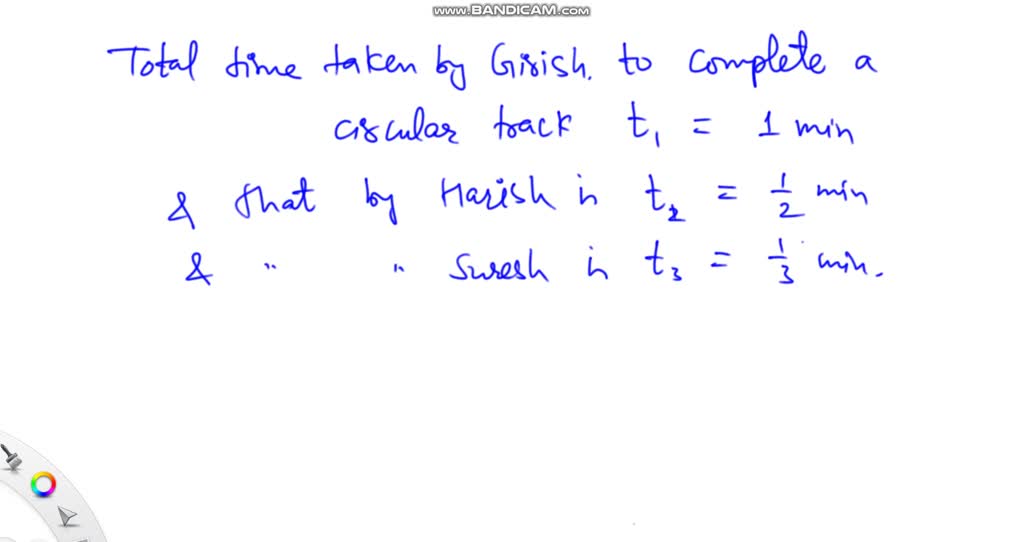 www.BANDICAM.com
Total time taken by Girish. to complete a
circular track t₁ = 1 min
& that by Harish in t₂ = 1/2 min
& " " Suresh in t₃ = 1/3 min.